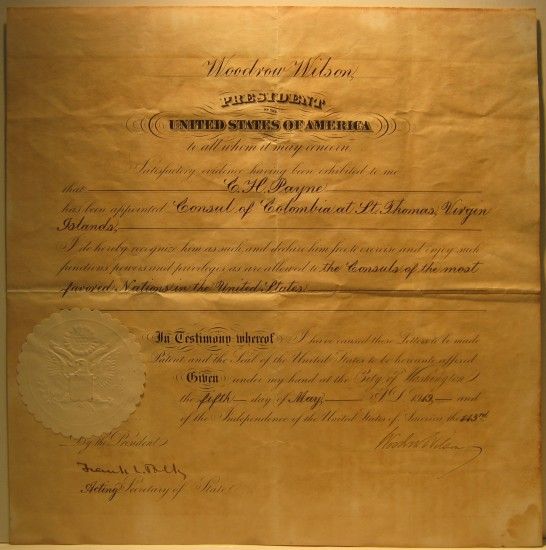 Woodrow Wilson,
PRESIDENT
OF THE
UNITED STATES OF AMERICA
to all whom it may concern
Satisfactory evidence having been exhibited to me
that E. H. Payne
has been appointed Consul of Colombia at St. Thomas, Virgin
Islands,
I do hereby recognize him as such, and declare him free to exercise and enjoy such
functions powers and privileges as are allowed to the Consuls of the most
favored Nations in the United States
In Testimony whereof I have caused these Letters to be made
Patent and the Seal of the United States to be hereunto affixed
Given under my hand at the City of Washington
the fifth day of May, A.D. 19 and
of the Independence of the United States of America, the
By the President
Woodrow Wilson
Frank L. Polk
Acting Secretary of State